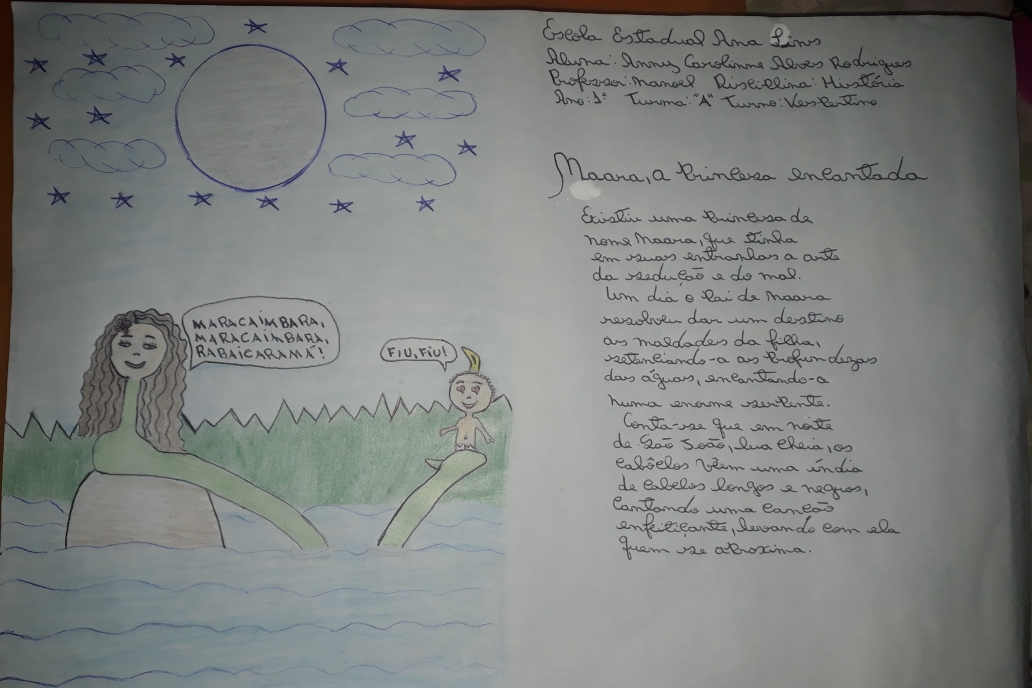 MARACAÍMBARA,
MARACAÍMBARA,
RABAICARAMÁ!
FIU, FIU!
Escola Estadual Ana Lins
Aluna: Anny Carolinne Alves Rodrigues
Professor: Manoel Disciplina: História
Ano: 1º Turma: "A" Turno: Vespertino
Maara, a princesa encantada
Existiu uma princesa de
nome Maara, que tinha
em suas entranhas a arte
da sedução e do mal.
Um dia o pai de Maara
resolveu dar um destino
as maldades da filha,
setenciando-a as profundezas
das águas, encantando-a
numa enorme serpente.
Conta-se que em noite
de São João, lua cheia, os
cabôclos vêem uma índia
de cabelos longos e negros,
cantando uma canção
enfeitiçante, levando com ela
quem se aproxima.